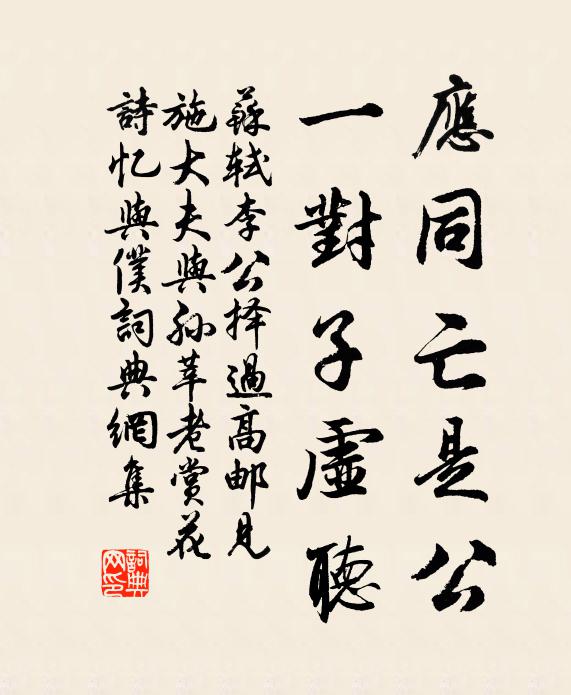 應同亡是公
一對子虛聽
蘇軾李公择過高邮見
施大夫與孫莘老賞花
詩忆與僕詞典網集
詞典网印